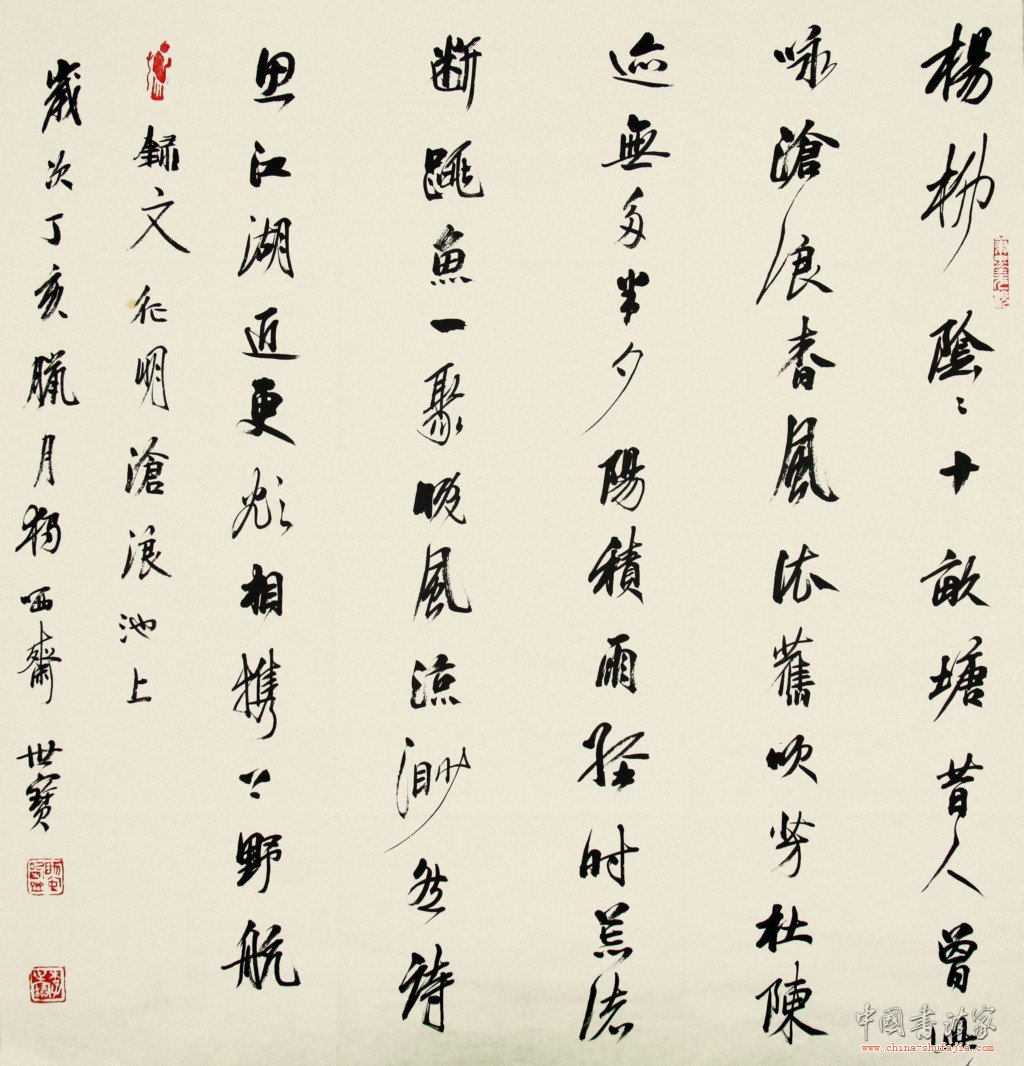 楊柳陰〻十畝塘昔人曾
咏滄浪春風依舊吹芳杜陳
迹無多半夕陽積雨經時荒渚
断跳魚一聚晚風涼渺然詩
思江湖近更欲相携上野航
錄文徵明滄浪池上
歲次丁亥臘月齋世寶
中國書法家
www.china-shufajia.com